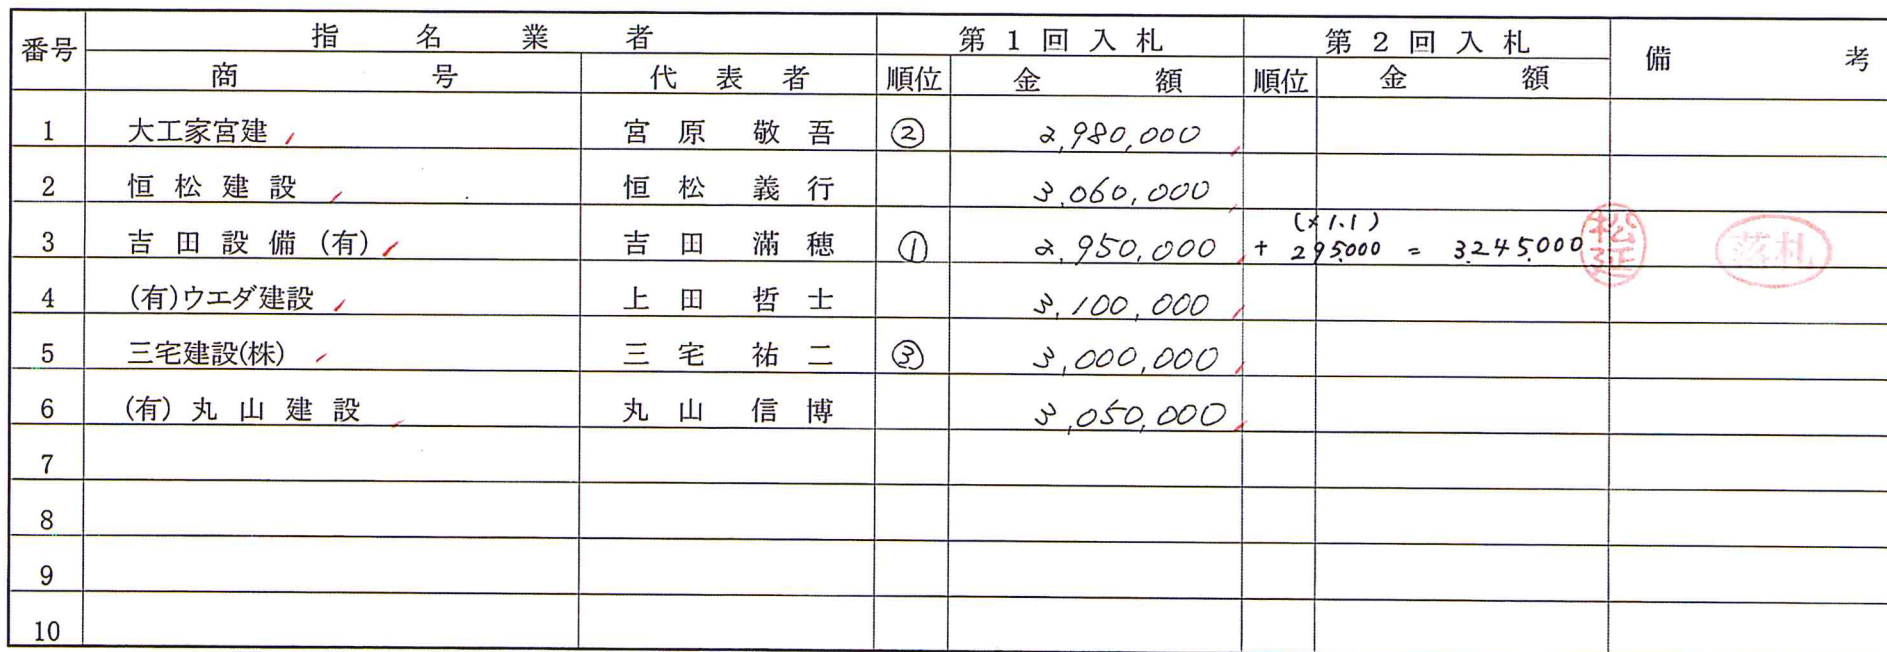 番号 指名業者 第1回入札 第2回入札 備考
商号 代表者 順位 金額 順位 金額
1 大工家宮建 宮原 敬吾 ② 2,980,000
2 恒松建設 恒松 義行 3,060,000
(×1.1)
3 吉田設備(有) 吉田 滿穂 ① 2,950,000 + 295,000 = 3,245,000 松延 落札
4 (有)ウエダ建設 上田 哲士 3,100,000
5 三宅建設(株) 三宅 祐二 ③ 3,000,000
6 (有)丸山建設 丸山 信博 3,050,000
7
8
9
10